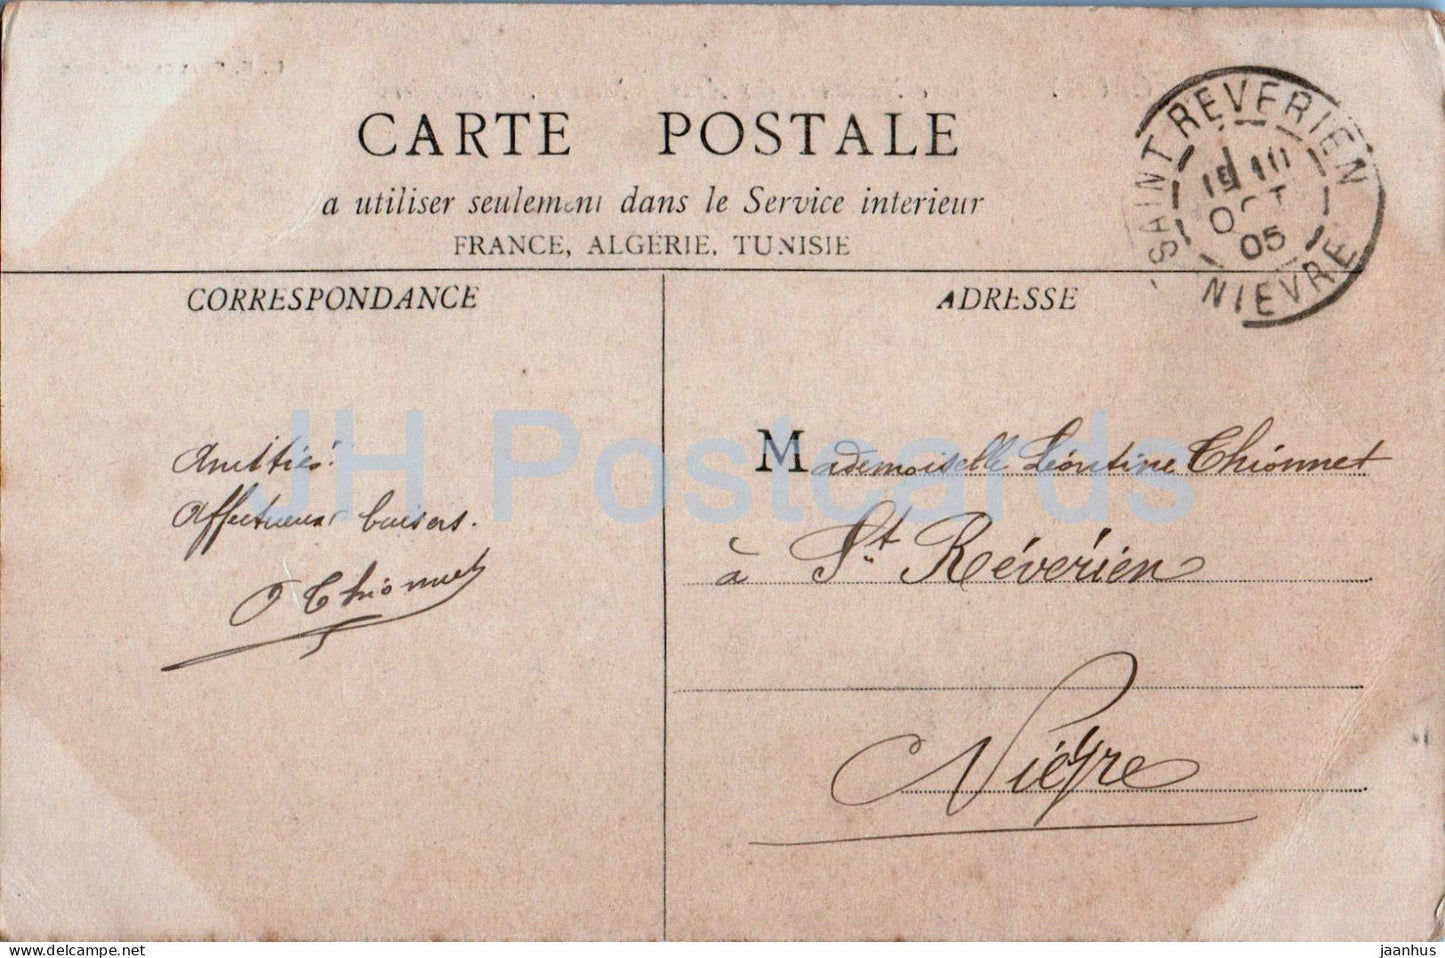 CARTE POSTALE
a utiliser seulement dans le Service interieur
FRANCE, ALGERIE, TUNISIE
SAINT REVERIEN
OCT
05
NIEVRE
CORRESPONDANCE
ADRESSE
Amitiés
Affectueux baisers.
Thionnet
Mademoiselle Léontine Thionnet
à St Révérien
Nièvre
JH Postcards
delcampe.net
jaanhus